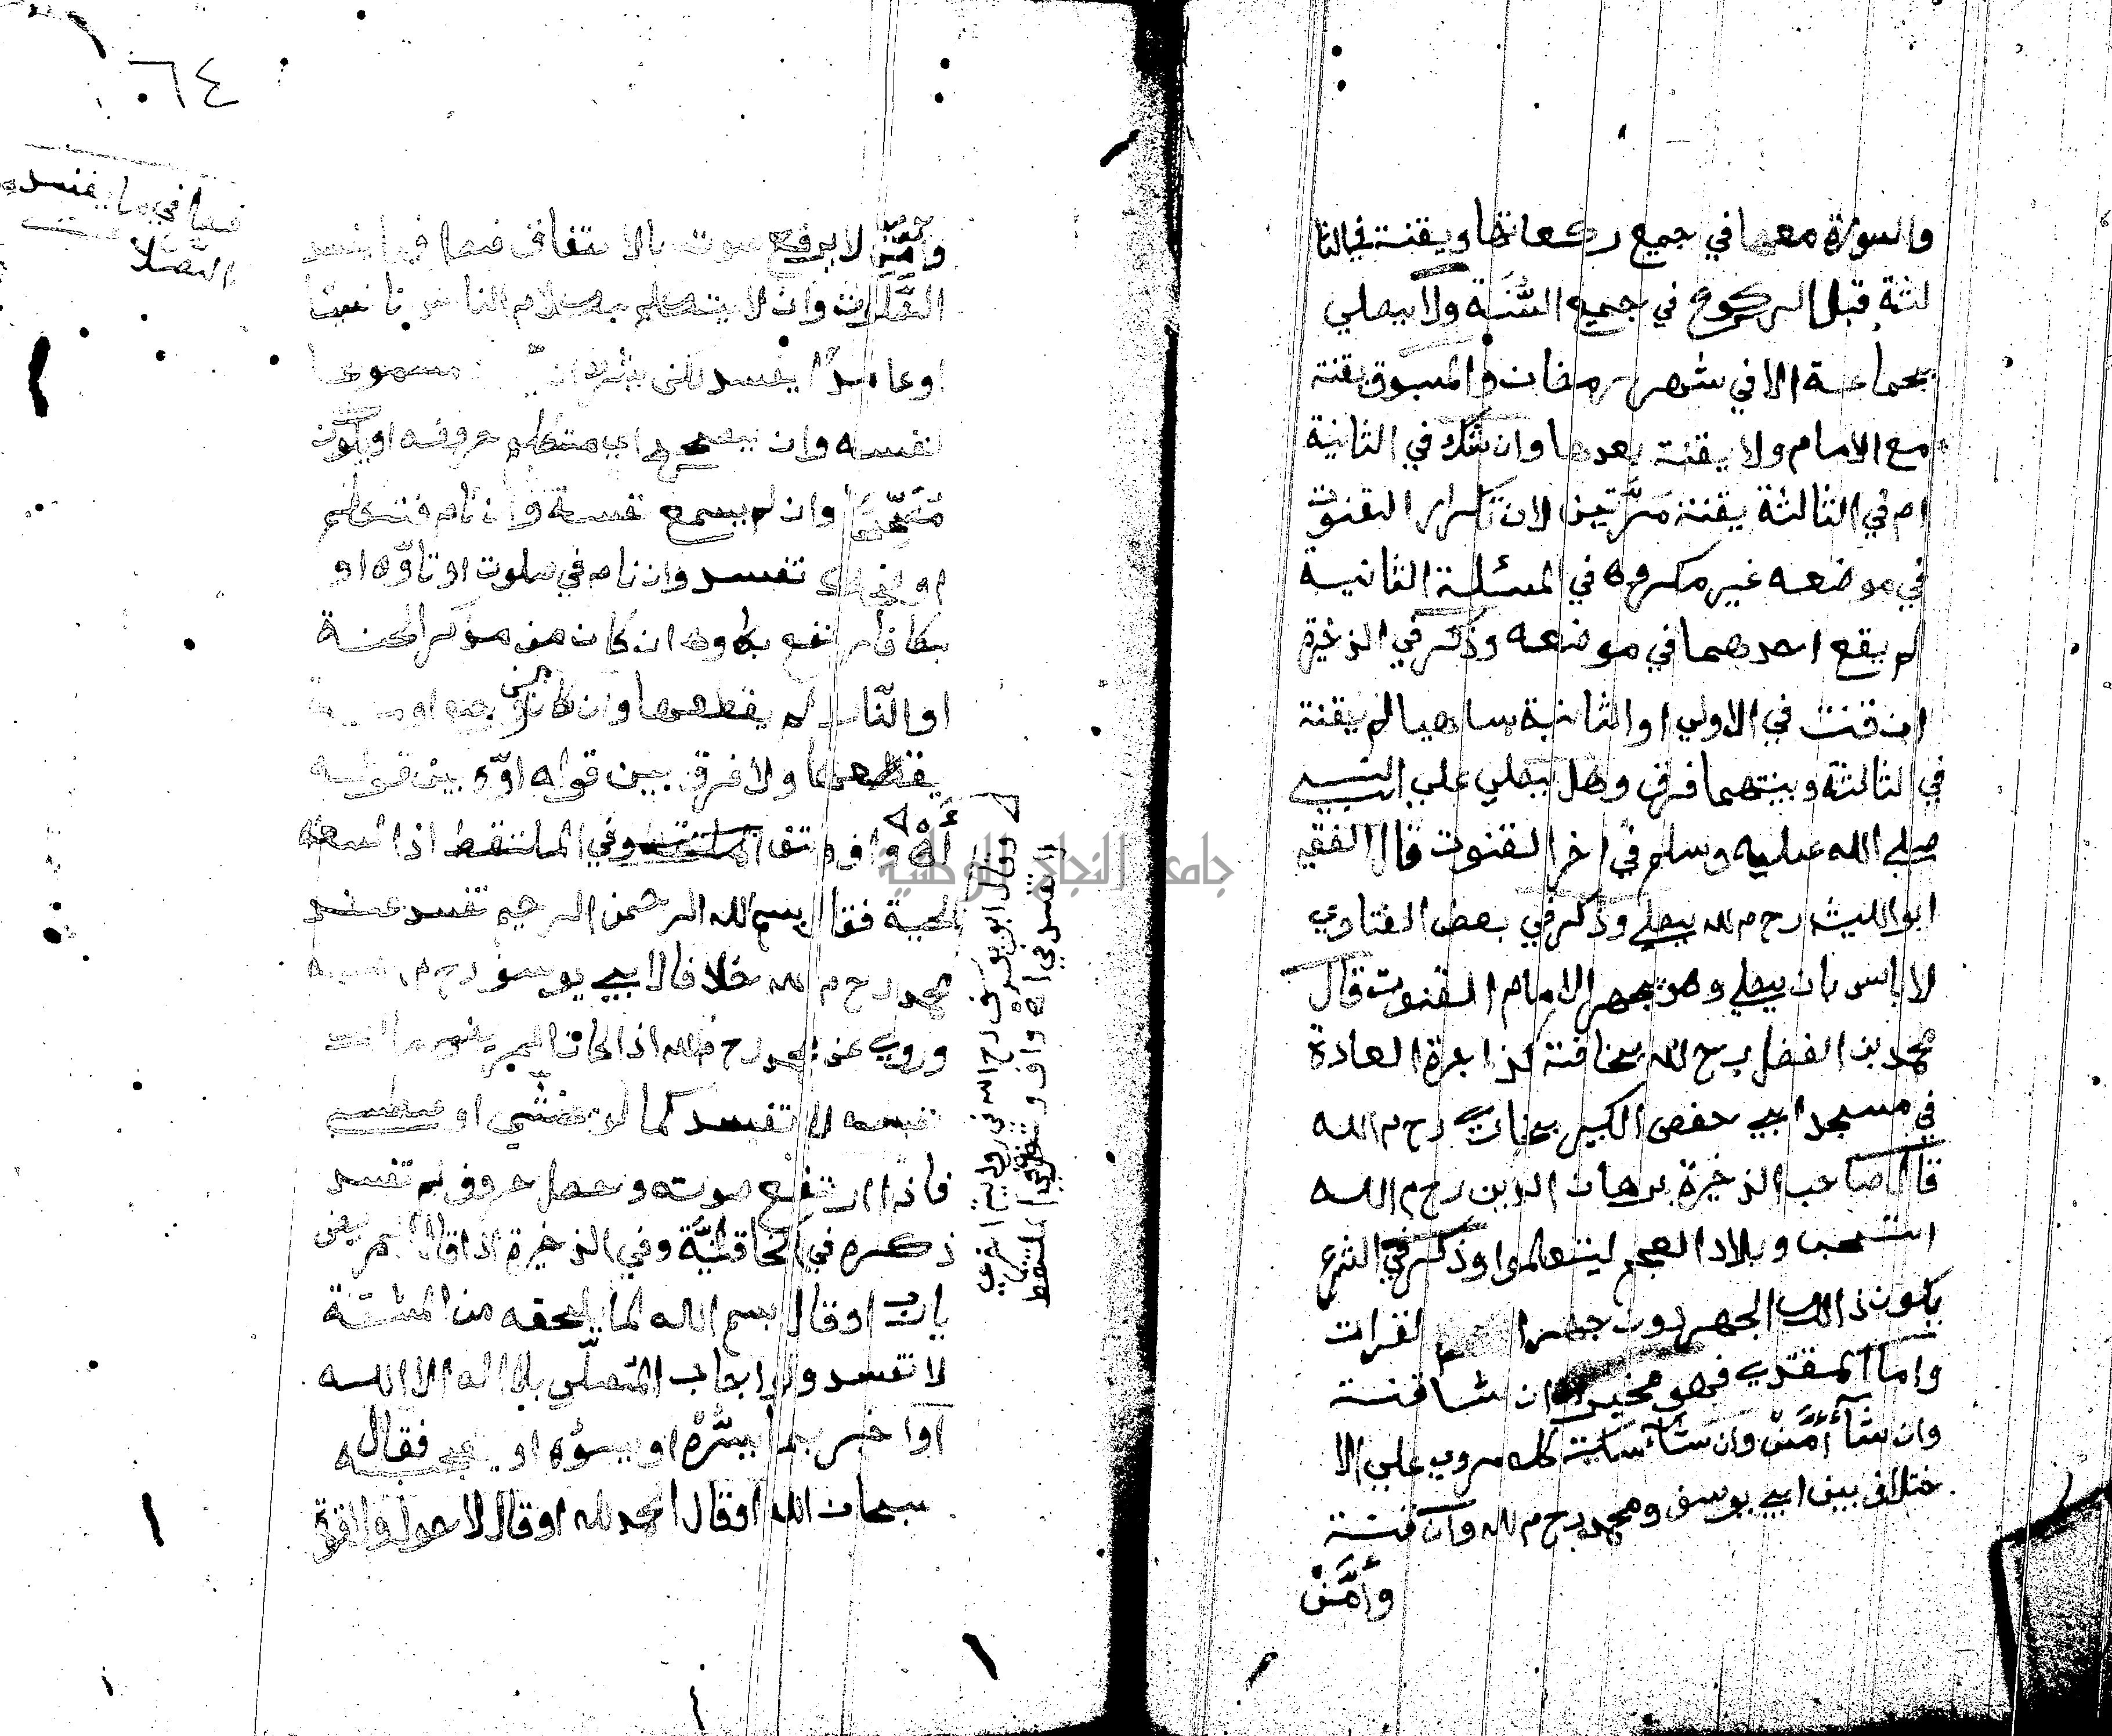 والسورة معها في جميع ركعاتها ويقنة في الثا
لثة قبل الركوع في جميع السنة ولا يصلي
بجماعة الا في شهر رمضان والمسبوق يقنة
مع الامام ولا يقنة بعدها وان شك في الثانية
ام في الثالثة يقنة مرتين لان تكرار القنوت
في موضعه غير مكروه في المسئلة الثانية
لم يقع احدهما في موضعه وذكر في الذخيرة
ان قنت في الاولي او الثانية ساهيا لم يقنة
في الثالثة وبينهما فرق وهل يصلي علي النبي
صلي الله عليه وسلم في اخر القنوت قال الفقيه
ابو الليث رح م لله يصلي وذكر في بعض الفتاوي
لا باس بان يصلي وهو يجهر الامام القنوت قال
محمد بن الفضل رح لله يخافتة كذا جرة العادة
في مسجد ابي حفص الكبير رح م الله
قال صاحب الذخيرة برهان الدين رح م الله
وبلاد العجم ليتعلموا وذكر في الشرع
يكون ذالك الجهر دون جهر لقرات
واما المقتدي فهو مخير ان شا قنتة
وان شآ أمّن وان شآ سكتة كله مروي علي الا
ختلاف بين ابي يوسف ومحمد رح م لله وان قنتة
وأمّن
٦٤
فيما يفسد
الصلا
وأمّن لا يرفع صوته بالاتفاق فصل فيما يفسد
الصلوة وان لا يتكلم بكلام الناس ناسيا
او عامدا يفسد مسموعا
لنفسه وان حروفه او يكون
وان لم يسمع نفسة وان نام فتكلم
تفسد وان نام في صلوته او تاوّه او
بكا فارتفع بكاوه ان كان من ذكر الجنة
او النّار لم يقطعها وان كان من
يقطعها ولا فرق بين قوله اوّه بين قوله
وفي الملتقط اذا لسعه
الحية فقال بسم الله الرحمن الرحيم تفسد عند
محمد رح م لله خلافا لابي يوسف رح م
وروي عن محمد رح م لله اذا كان المريض
نفسه لا تفسد كما لو تجشّي او عطس
فاذا ارتفع صوته وحصل حروف لم تفسد
ذكره في الخاقانيّة وفي الذخيرة اذا قال المريض
يارب او قال بسم الله لما يلحقه من المشقة
لا تفسد ولو اجاب المصلّي بلا اله الا الله
او اخبر بما يسّره او يسؤه او يعجبه فقال
سبحان الله او قال الحمد لله او قال لا حول ولا قوة
وقال ابو يوسف رح الله في رواية اخري
لا تفسد في اه واف و
جامعة النجاح الوطنية